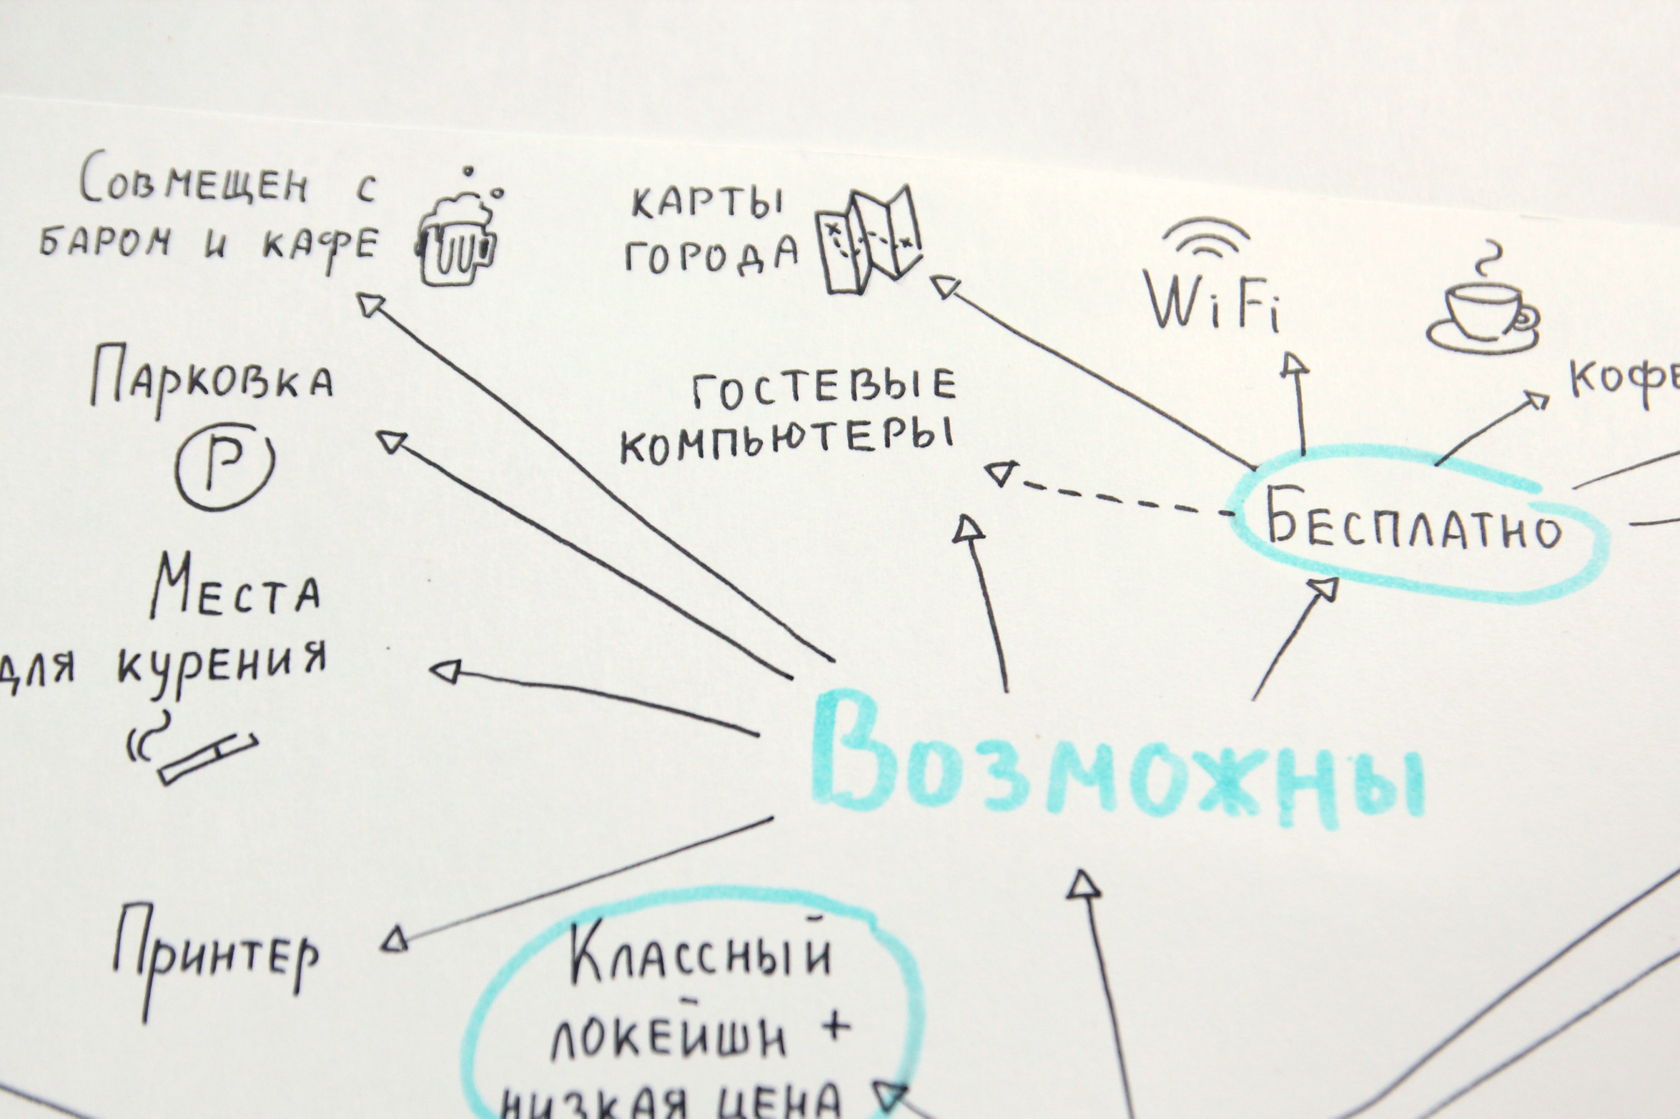 Совмещен с
баром и кафе
карты
города
WiFi
кофе
Парковка
P
гостевые
компьютеры
Бесплатно
Места
для курения
Возможны
Принтер
Классный
локейшн +
низкая цена